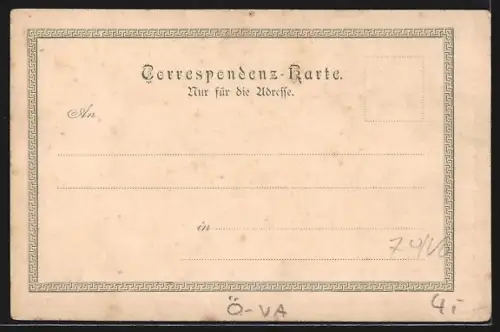 Correspondenz-Karte.
Nur für die Adresse.
An
in
Ö-VA
4,-